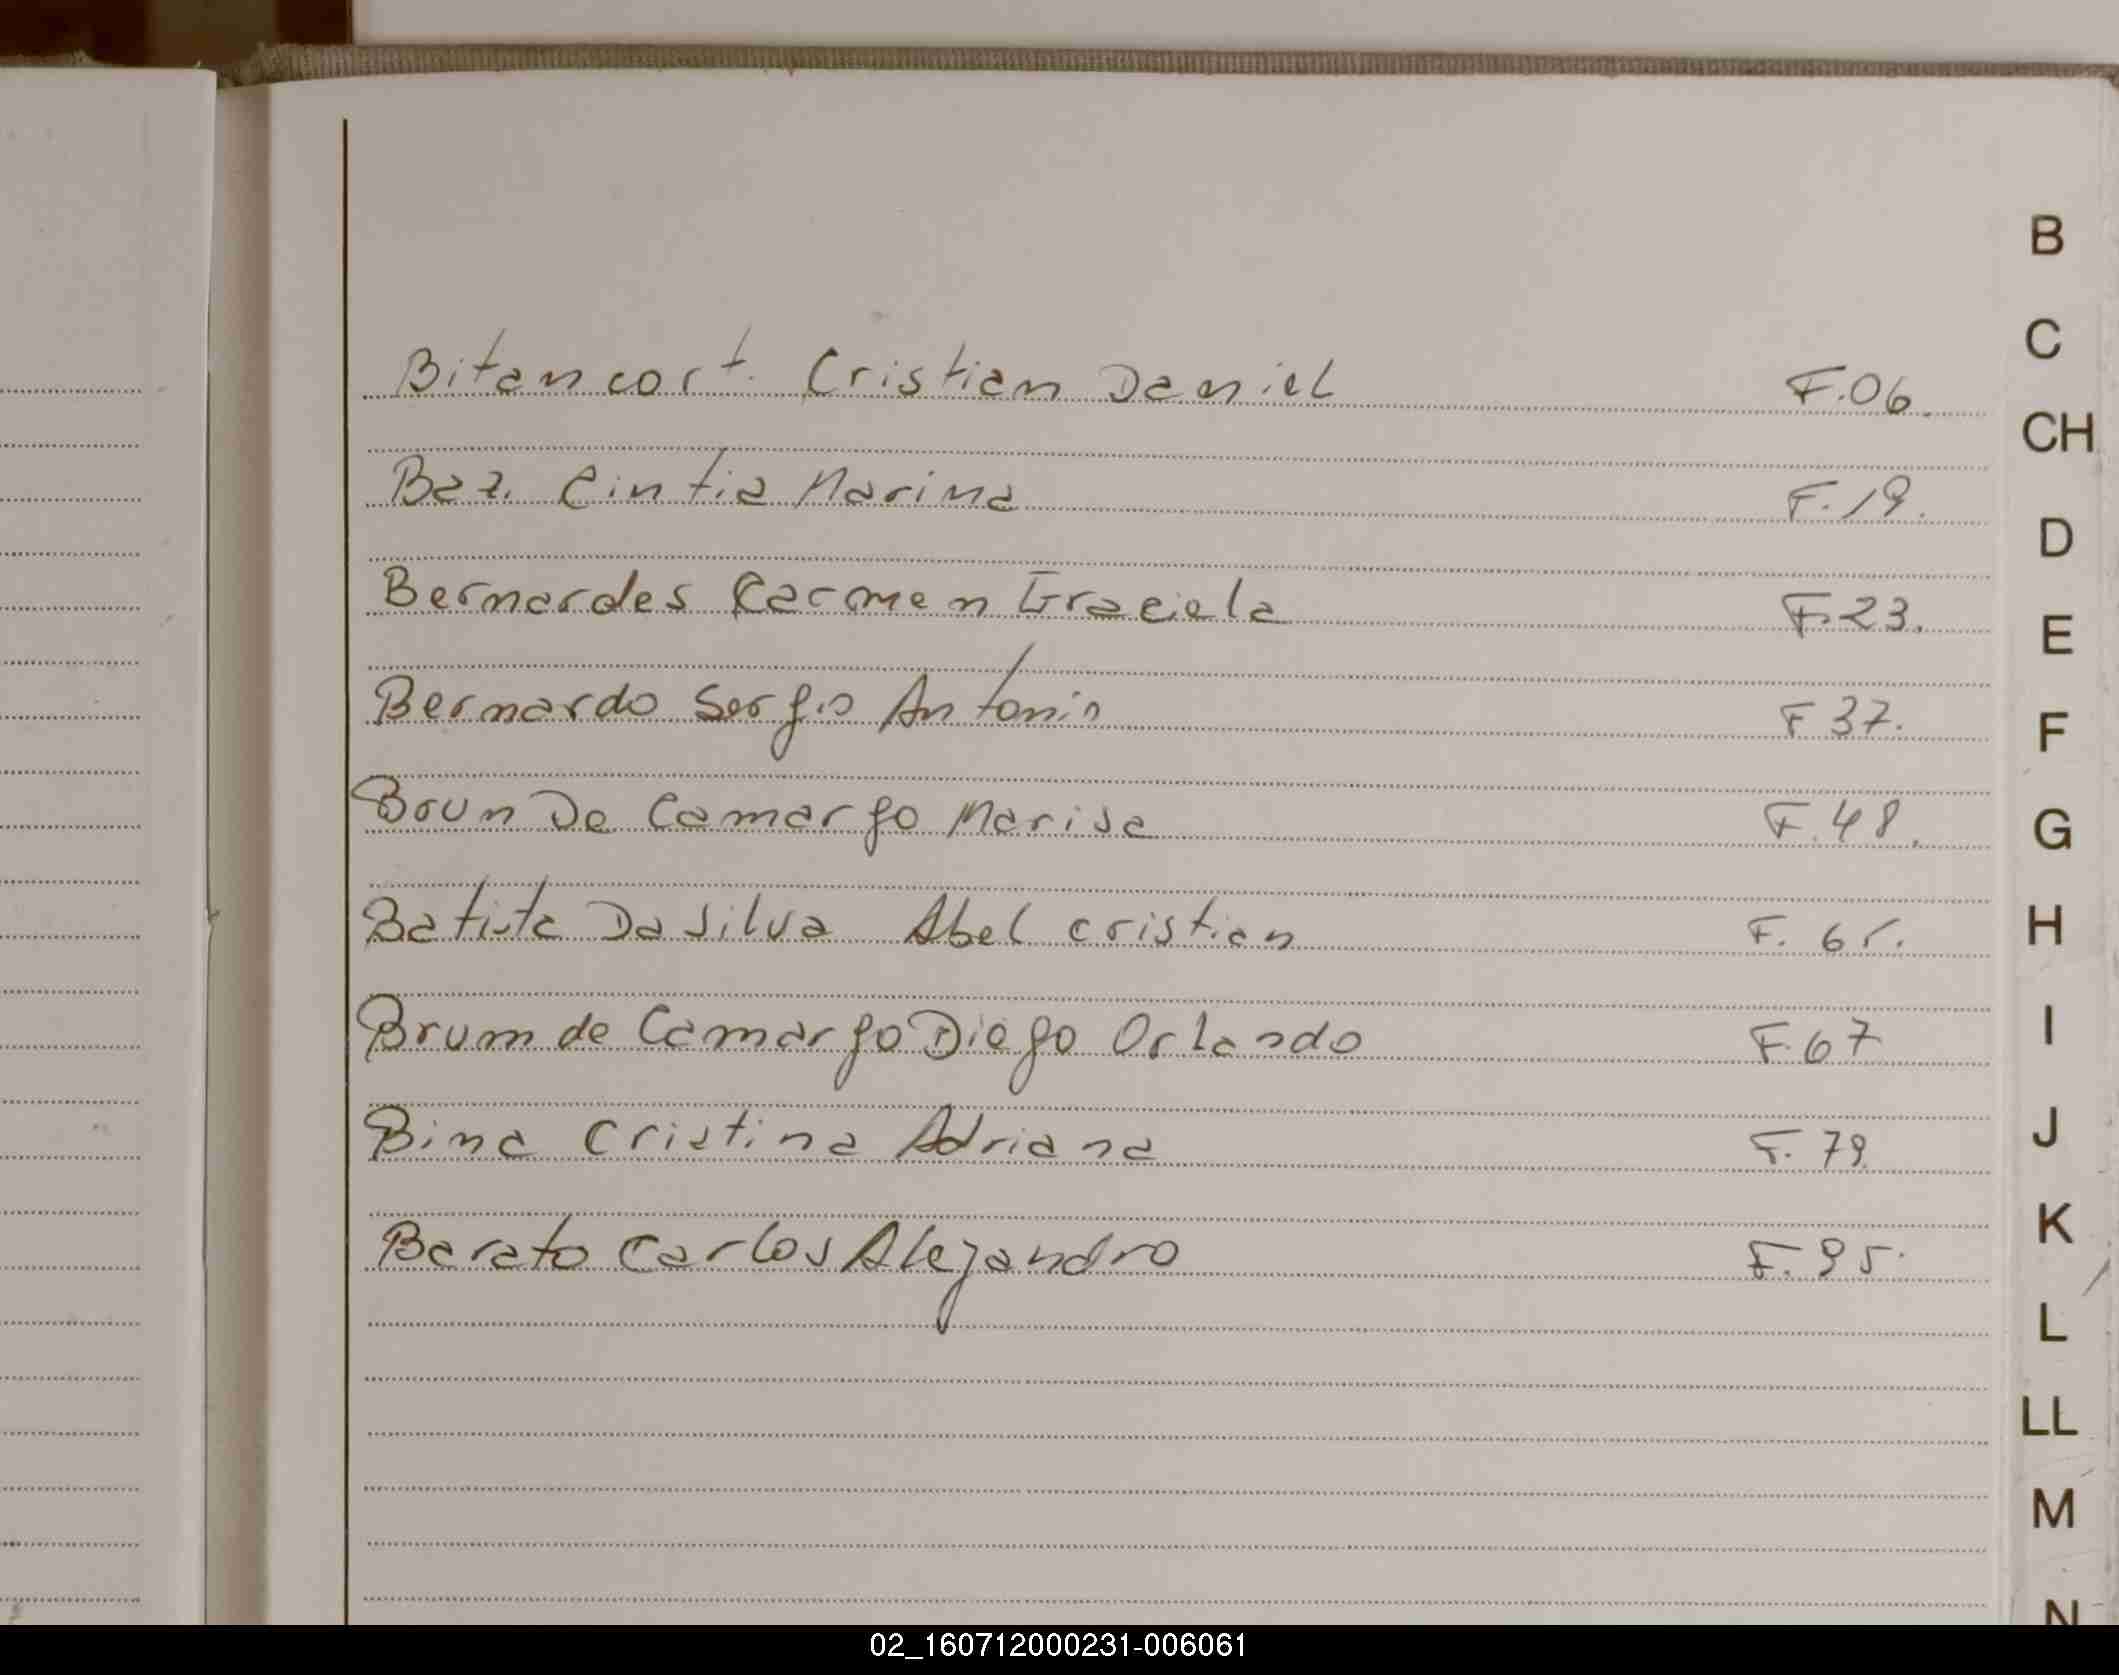 B
C
Bitancort. Cristian Daniel F.06.
CH
Baz. Cintia Marina F.19.
D
Bernardes Carmen Graciela F.23.
E
Bernardo Sergio Antonio F 37.
F
Brun De Camargo Marisa F.48.
G
Batista Da Silva Abel Cristian F. 65.
H
Brum de Camargo Diego Orlando F.67
I
Bina Cristina Adriana F. 79.
J
Barato Carlos Alejandro F.95.
K
L
LL
M
N
02_160712000231-006061